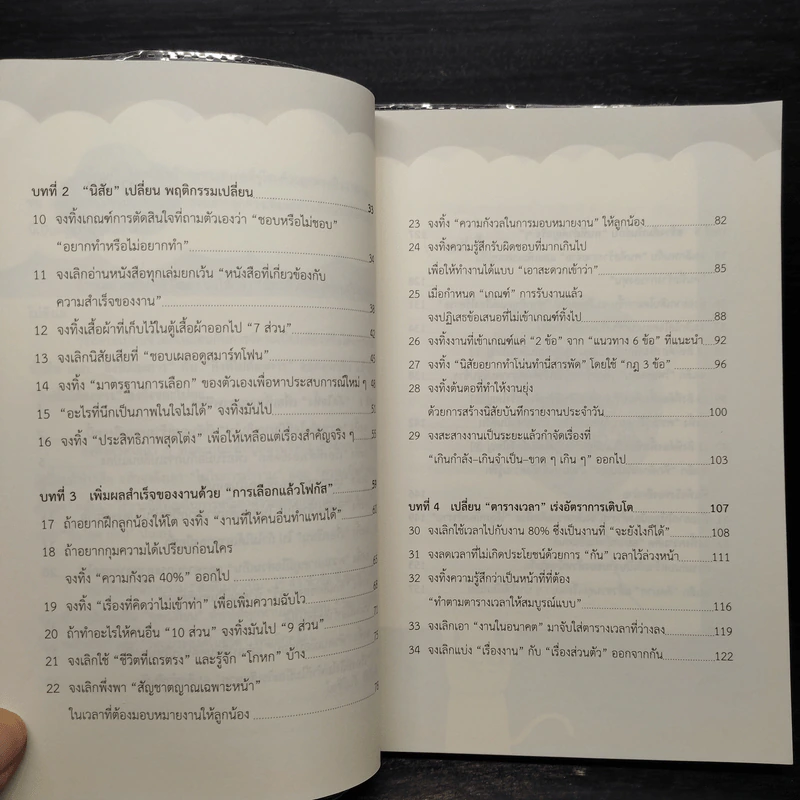 บทที่ 2 “นิสัย” เปลี่ยน พฤติกรรมเปลี่ยน 33
10 จงทิ้งเกณฑ์การตัดสินใจที่ถามตัวเองว่า “ชอบหรือไม่ชอบ”
“อยากทำหรือไม่อยากทำ” 34
11 จงเลิกอ่านหนังสือทุกเล่มยกเว้น “หนังสือที่เกี่ยวข้องกับ
ความสำเร็จของงาน” 38
12 จงทิ้งเสื้อผ้าที่เก็บไว้ในตู้เสื้อผ้าออกไป “7 ส่วน” 42
13 จงเลิกนิสัยเสียที่ “ชอบเผลอดูสมาร์ทโฟน” 45
14 จงทิ้ง “มาตรฐานการเลือก” ของตัวเองเพื่อหาประสบการณ์ใหม่ ๆ 48
15 “อะไรที่นึกเป็นภาพในใจไม่ได้” จงทิ้งมันไป
16 จงทิ้ง “ประสิทธิภาพสุดโต่ง” เพื่อให้เหลือแต่เรื่องสำคัญจริง ๆ 55
บทที่ 3 เพิ่มผลสำเร็จของงานด้วย “การเลือกแล้วโฟกัส” 59
17 ถ้าอยากฝึกลูกน้องให้โต จงทิ้ง “งานที่ให้คนอื่นทำแทนได้” 60
18 ถ้าอยากกุมความได้เปรียบก่อนใคร
จงทิ้ง “ความกังวล 40%” ออกไป
19 จงทิ้ง “เรื่องที่คิดว่าไม่เข้าท่า” เพื่อเพิ่มความฉับไว
20 ถ้าทำอะไรให้คนอื่น “10 ส่วน” จงทิ้งมันไป “9 ส่วน”
21 จงเลิกใช้ “ชีวิตที่เถรตรง” และรู้จัก “โกหก” บ้าง
22 จงเลิกพึ่งพา “สัญชาตญาณเฉพาะหน้า”
ในเวลาที่ต้องมอบหมายงานให้ลูกน้อง
23 จงทิ้ง “ความกังวลในการมอบหมายงาน” ให้ลูกน้อง 82
24 จงทิ้งความรู้สึกรับผิดชอบที่มากเกินไป
เพื่อให้ทำงานได้แบบ “เอาสะดวกเข้าว่า” 85
25 เมื่อกำหนด “เกณฑ์” การรับงานแล้ว
จงปฏิเสธข้อเสนอที่ไม่เข้าเกณฑ์ทิ้งไป 88
26 จงทิ้งงานที่เข้าเกณฑ์แค่ “2 ข้อ” จาก “แนวทาง 6 ข้อ” ที่แนะนำ 92
27 จงทิ้ง “นิสัยอยากทำโน่นทำนี่สารพัด” โดยใช้ “กฎ 3 ข้อ” 96
28 จงทิ้งต้นตอที่ทำให้งานยุ่ง
ด้วยการสร้างนิสัยบันทึกรายงานประจำวัน 100
29 จงสะสางงานเป็นระยะแล้วกำจัดเรื่องที่
“เกินกำลัง-เกินจำเป็น-ขาด ๆ เกิน ๆ” ออกไป 103
บทที่ 4 เปลี่ยน “ตารางเวลา” เร่งอัตราการเติบโต 107
30 จงเลิกใช้เวลาไปกับงาน 80% ซึ่งเป็นงานที่ “จะยังไงก็ได้” 108
31 จงลดเวลาที่ไม่เกิดประโยชน์ด้วยการ “กัน” เวลาไว้ล่วงหน้า 111
32 จงทิ้งความรู้สึกว่าเป็นหน้าที่ที่ต้อง
“ทำตามตารางเวลาให้สมบูรณ์แบบ” 116
33 จงเลิกเอา “งานในอนาคต” มาจับใส่ตารางเวลาที่ว่างลง 119
34 จงเลิกแบ่ง “เรื่องงาน” กับ “เรื่องส่วนตัว” ออกจากกัน 122